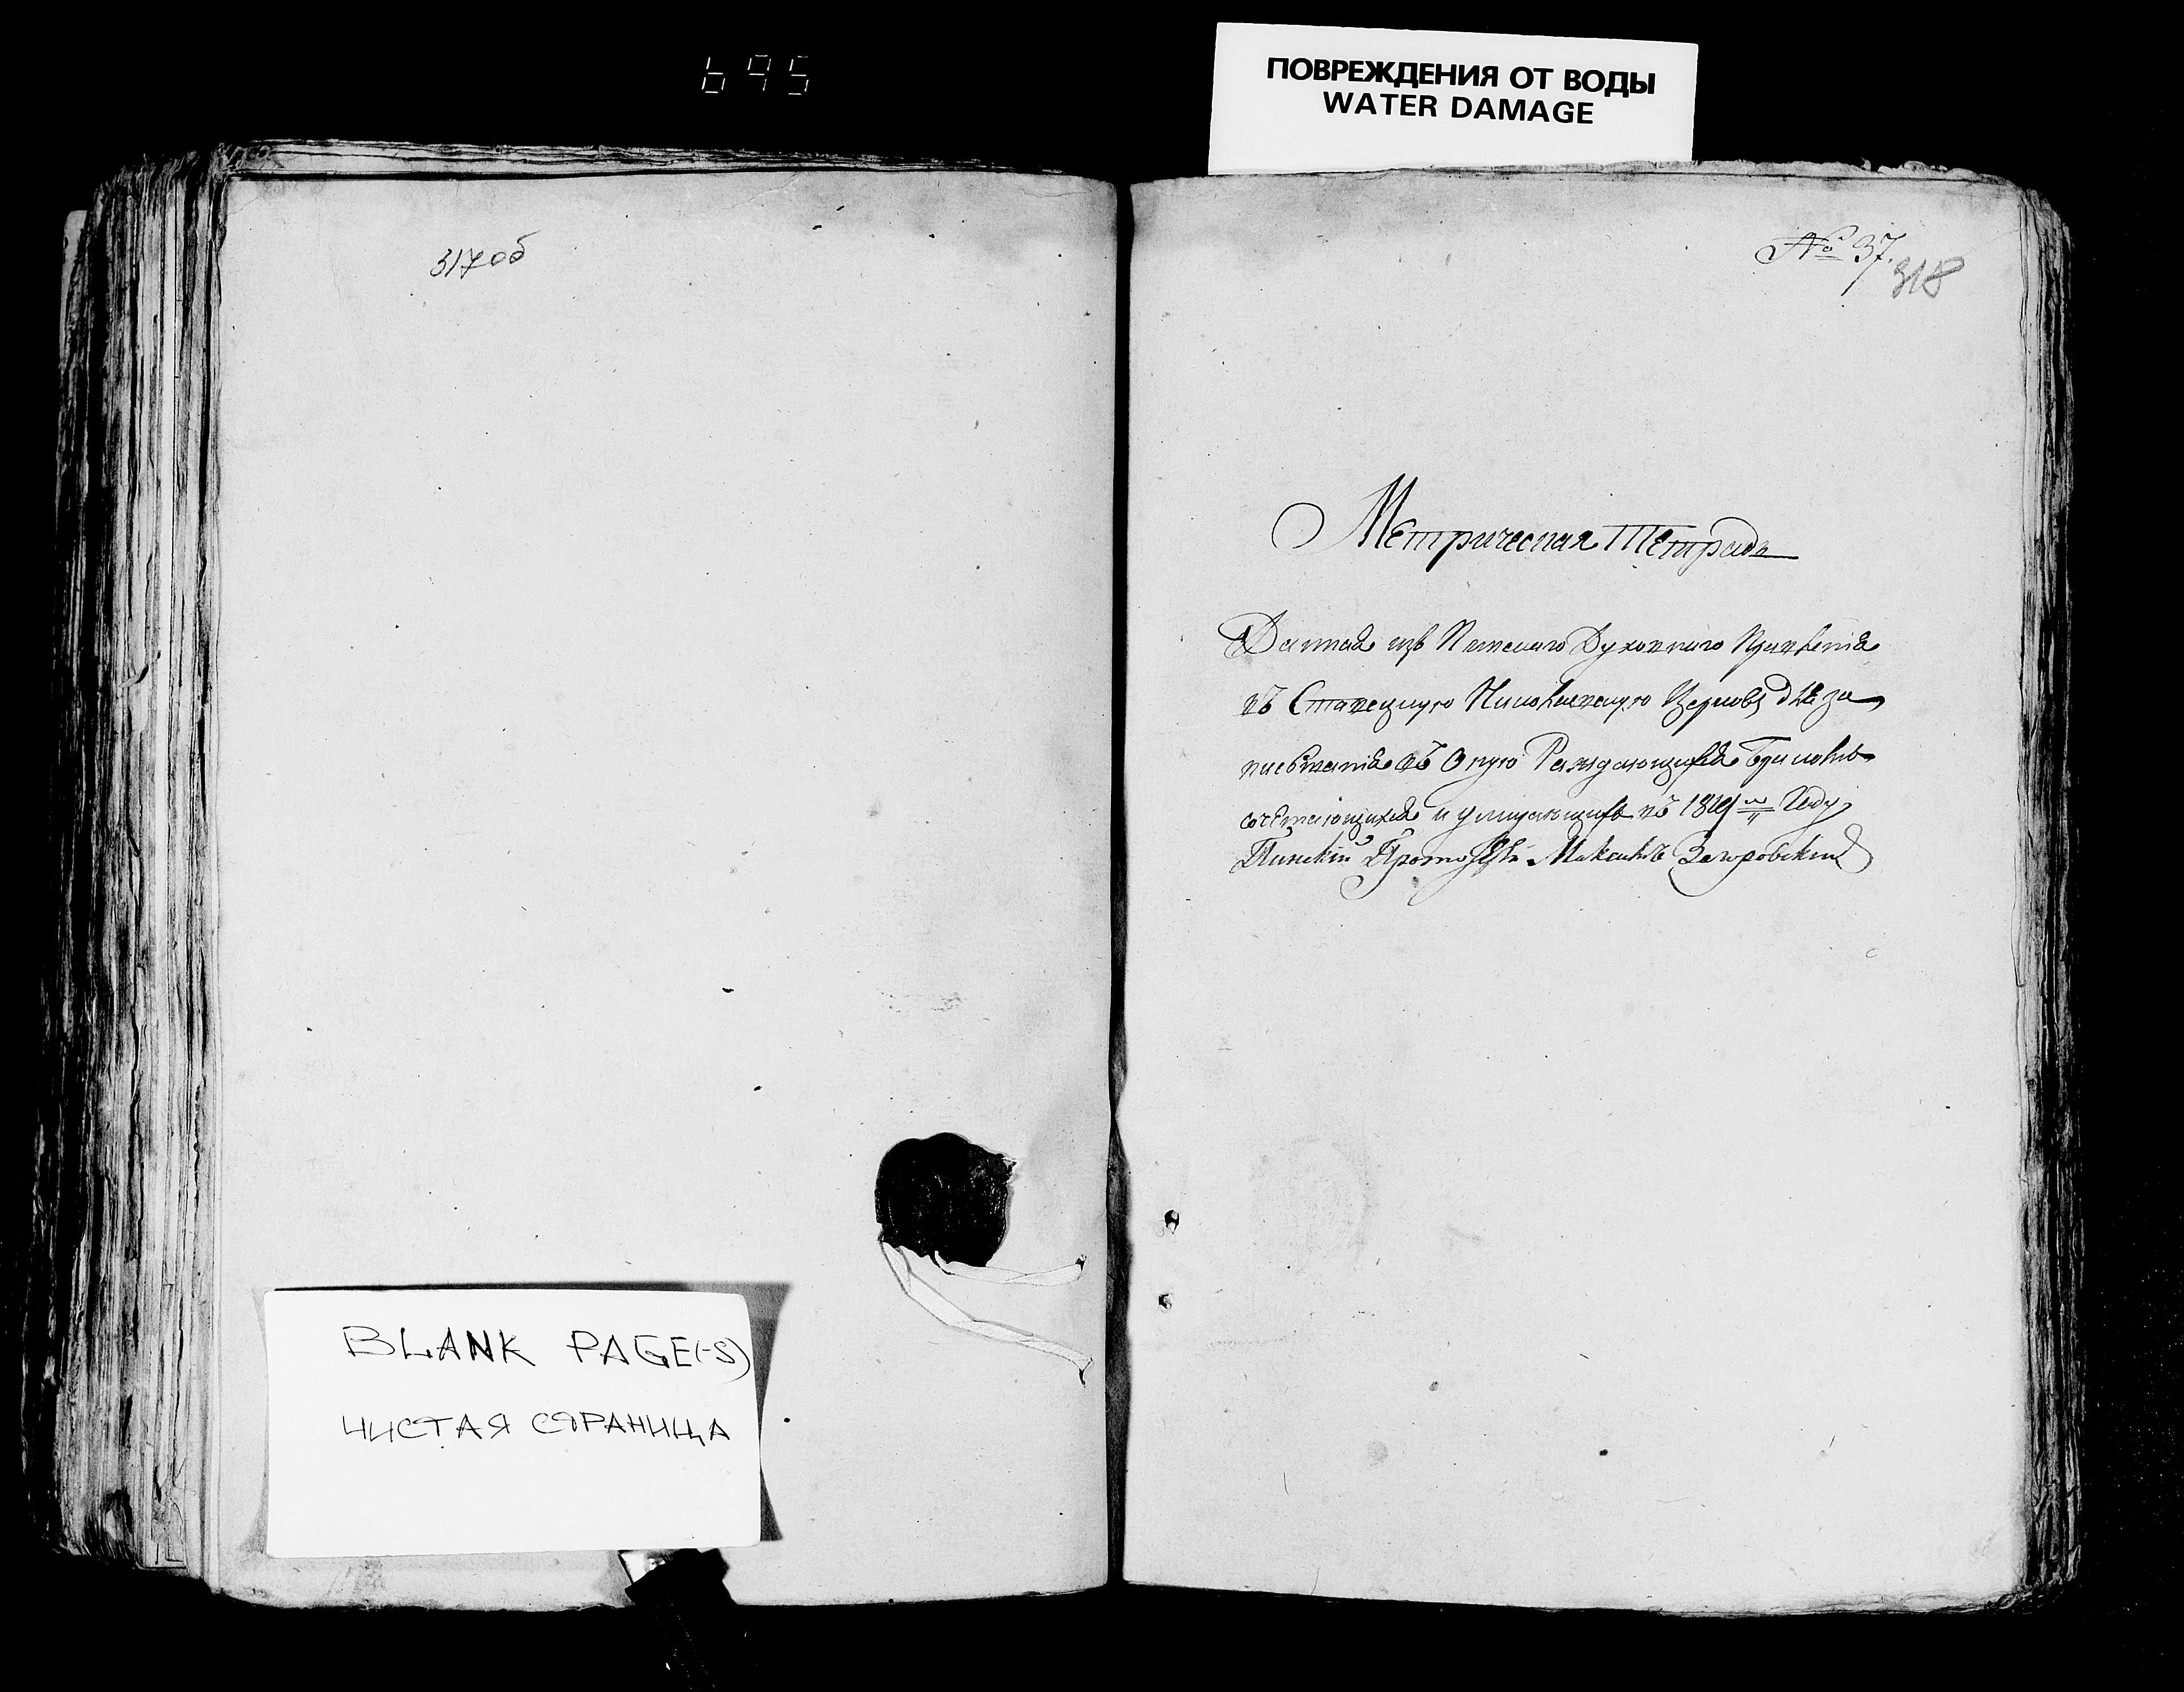 695
ПОВРЕЖДЕНИЯ ОТ ВОДЫ
WATER DAMAGE
317об
№ 37.
318
Метрическая Тетрадь
Данная изъ Пинскаго Духовнаго Правленія
въ Ставецкую Николаевскую Церковь для за
писыванія въ Оную Раждающихся Бракомъ
сочетающихся и умирающихъ въ Году
Пинскій Максимъ
BLANK PAGE(-S)
ЧИСТАЯ СТРАНИЦА